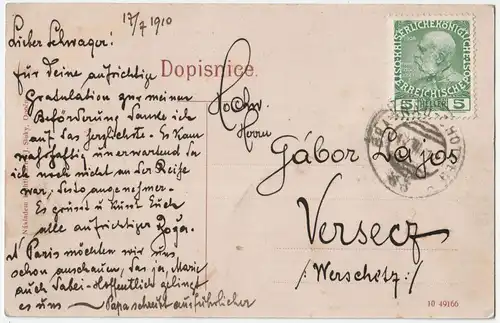 17/7 1910
Lieber Schwager!
für Deine aufrichtige
Gratulation zur meiner
Beförderung danke ich
auf das herzlichste. Es kam
wahrhaftig unerwartend da
ich noch nicht an der Reihe
war, desto angenehmer.
Es grüsst u küsst Euch
alle aufrichtiger
Paris möchten wir uns
schon anschauen, das ja, Marie
auch dabei - Hoffentlich gelingt
es uns – Papa schreibt ausführlicher
Dopisnice.
Hochw.
Herrn
Gábor Lajos
Versecz
/Werschetz/
KAISERLICHE KÖNIGLICHE
ÖSTERREICHISCHE
5 HELLER 5
10 49166